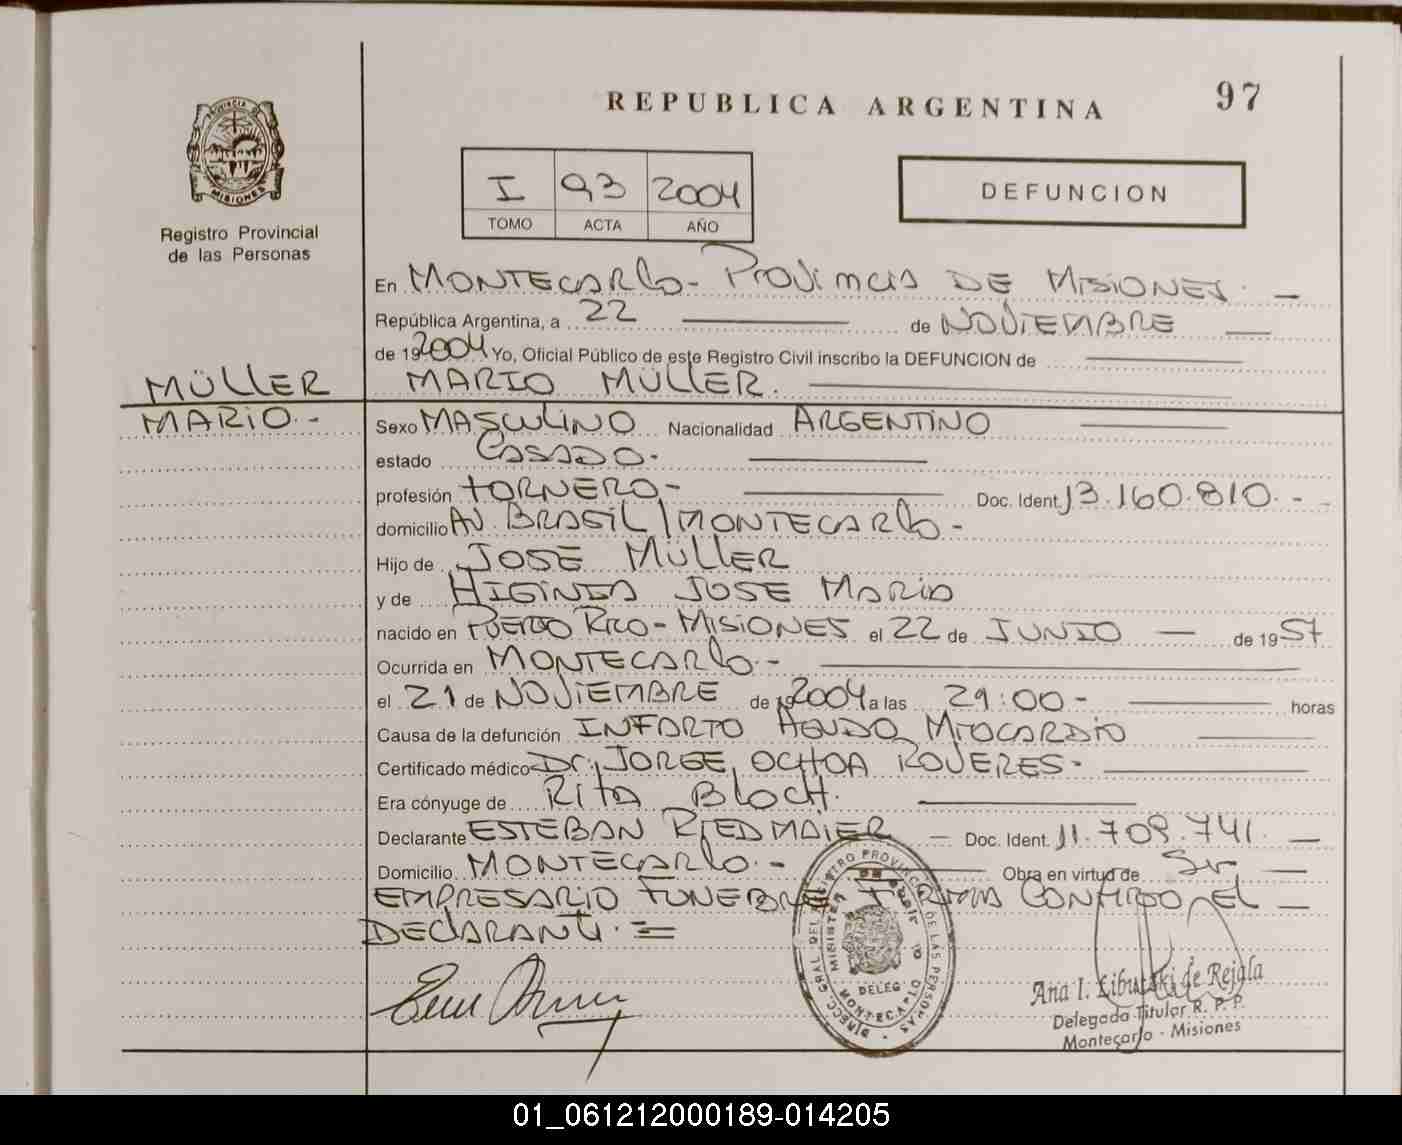 97
REPUBLICA ARGENTINA
PROVINCIA DE
MISIONES
Registro Provincial
de las Personas
I 93 2004
TOMO ACTA AÑO
DEFUNCION
En MONTECARLO - PROVINCIA DE MISIONES. —
República Argentina, a 22 — de NOVIEMBRE —
de 19 2004 Yo, Oficial Público de este Registro Civil inscribo la DEFUNCION de —
MÜLLER MARIO MÜLLER. —
MARIO.- Sexo MASCULINO Nacionalidad ARGENTINO —
estado CASADO. —
profesión TORNERO - — Doc. Ident. 13.160.810. -
domicilio AV. BRASIL / MONTECARLO -
Hijo de JOSE MÜLLER
y de HIGINIA JOSE MARIA
nacido en PUERTO RICO - MISIONES el 22 de JUNIO — de 1957
Ocurrida en MONTECARLO.- —
el 21 de NOVIEMBRE de 19 2004 a las 21:00 - — horas
Causa de la defunción INFARTO AGUDO MIOCARDIO —
Certificado médico Dr. JORGE OCHOA ROVERES. —
Era cónyuge de RITA BLOCH. —
Declarante ESTEBAN RIEDMAIER — Doc. Ident. 11.709.741. —
Domicilio MONTECARLO.- — Obra en virtud de Sr —
EMPRESARIO FUNEBRE FIRMA CONMIGO EL —
DECLARANTE. =
DIRECC. GRAL DEL REGISTRO PROVINCIAL DE LAS PERSONAS
DELEG
MONTECARLO
Ana I. Libutzki de Rejala
Delegada Titular R. P. P.
Montecarlo - Misiones
01_061212000189-014205